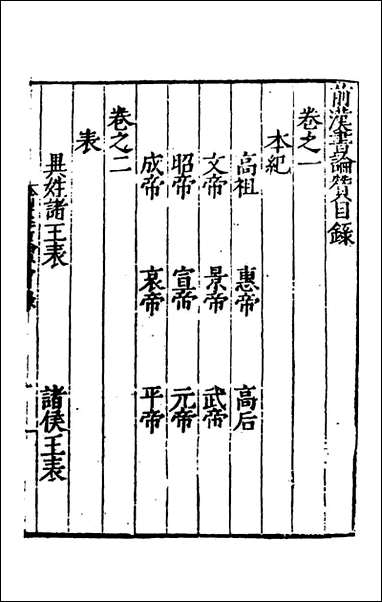 前漢書論贊目錄
卷之一
本紀
高祖 惠帝 高后
文帝 景帝 武帝
昭帝 宣帝 元帝
成帝 哀帝 平帝
卷之二
表
異姓諸王表 諸侯王表